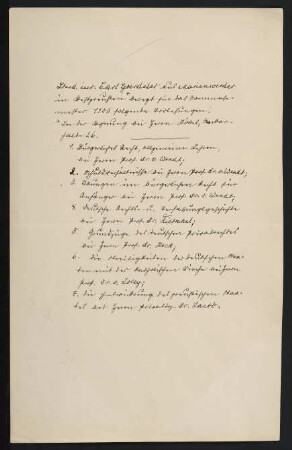 Stud. iur. Carl Goerdeler aus Marienwerder
in Westpreußen belegt für das Sommerse-
mester 1903 folgende Vorlesungen:
in der Wohnung bei Herrn
1. Bürgerliches Recht, allgemeine Lehren,
bei Herrn Prof. Dr. v.
2. Schuldverhältnisse bei Herrn Prof. Dr. v.
3. Übungen im bürgerlichen Recht für
Anfänger bei Herrn Prof. Dr. v.
4. Deutsche Rechts- u. Verfassungsgeschichte
bei Herrn Prof. Dr.
5. Grundzüge des deutschen Privatrechts
bei Herrn Prof. Dr. Beck;
6. die Streitigkeiten der deutschen Staa-
ten mit der katholischen Kirche bei Herrn
Prof. Dr. v.
7. die Entwicklung des preußischen Staa-
tes bei Herrn Privatdoz. Dr.